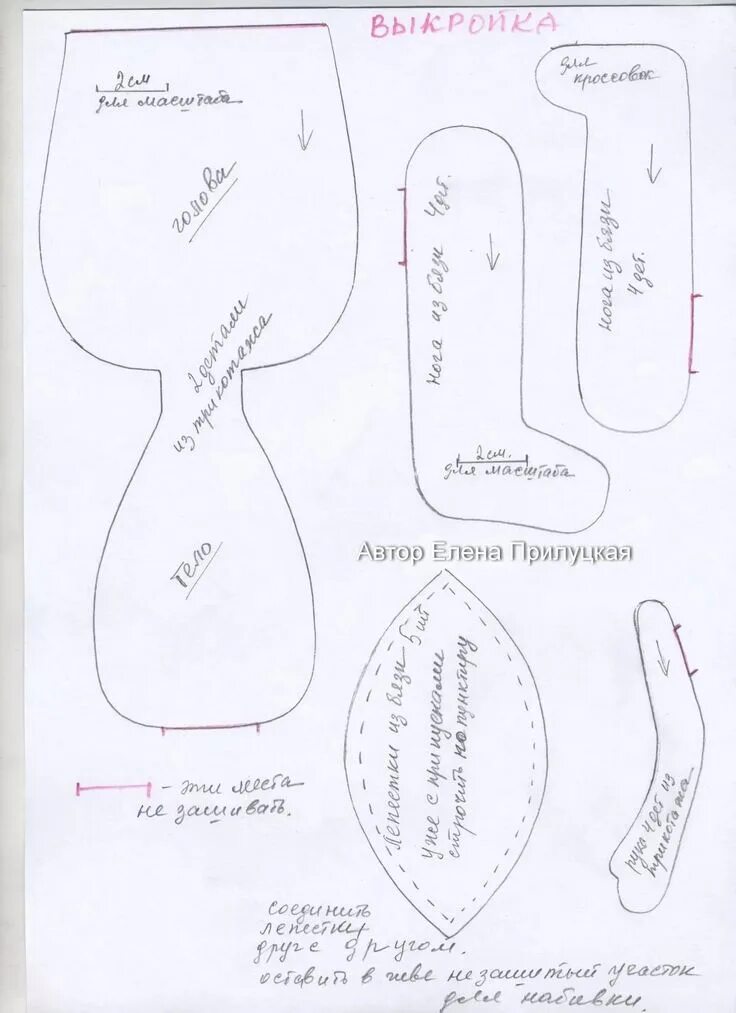 ВЫКРОЙКА
2см
для масштаба
голова
2 детали
из трикотажа
тело
для
кроссовок
нога из бязи
4 дет.
нога из бязи 4 дет.
2см.
для масштаба
Автор Елена Прилуцкая
Лепестки из бязи 5 шт
уже с припусками
строчить по пунктиру
рука 4 дет из
трикотажа
- эти места
не зашивать.
соединить
лепестки
друг с другом.
оставить в шве незашитый участок
для набивки.